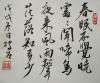 春眠不覺曉
處處聞啼鳥
夜来風雨聲
花落知多少
戊戌